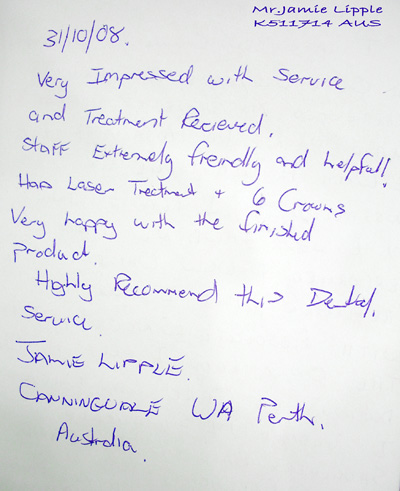 Mr.Jamie Lipple
K511714 AUS
31/10/08.
Very Impressed with Service
and Treatment Recieved.
Staff Extremely freindly and helpful!
Had Laser Treatment + 6 Crowns
Very happy with the finished
product.
Highly Recommend this Dental.
Service.
JAMIE LIPPLE.
CANNINGVALE WA Perth.
Australia.